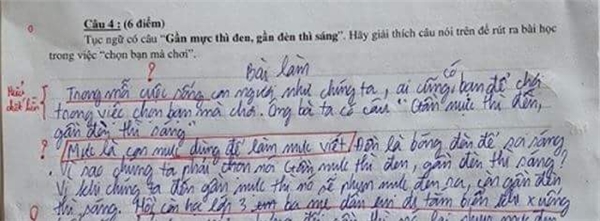 Câu 4 : (6 điểm)
Tục ngữ có câu “Gần mực thì đen, gần đèn thì sáng”. Hãy giải thích câu nói trên để rút ra bài học
trong việc “chọn bạn mà chơi”.
?
Bài làm
Trong mỗi cuộc sống con người như chúng ta, ai cũng có bạn để chơi
trong việc chọn bạn mà chơi. Ông bà ta có câu “Gần mực thì đen,
gần đèn thì sáng
? Mực là con mực dùng để làm mực viết, Đèn là bóng đèn để soi sáng
Vì sao chúng ta phải chọn nơi Gần mực thì đen, gần đèn thì sáng?
Vì khi chúng ta đến gần mực thì nó sẽ phụn mực đen ra, còn gần đèn
thì sáng. Hồi còn học lớp 3, em ba mẹ dẫn em đi tắm biển xuống